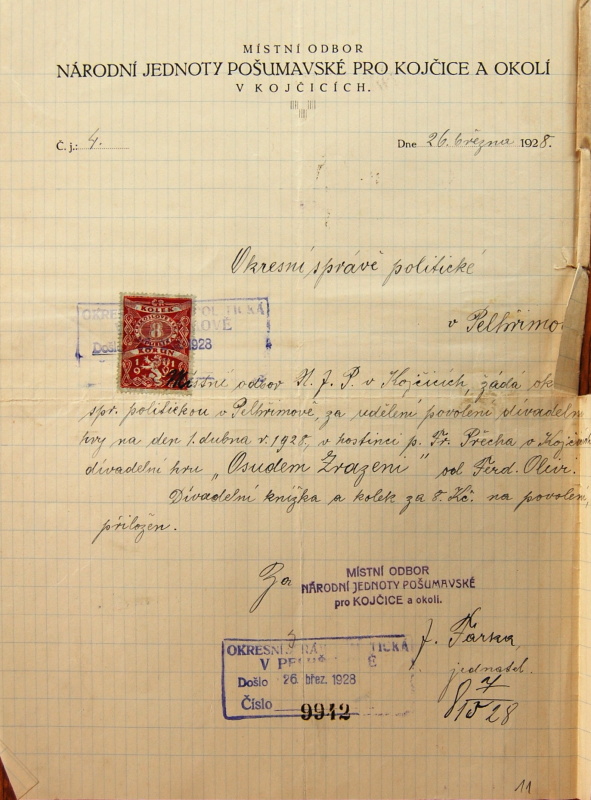 MÍSTNÍ ODBOR
NÁRODNÍ JEDNOTY POŠUMAVSKÉ PRO KOJČICE A OKOLÍ
V KOJČICÍCH.
Č. j.: 4. Dne 26. března 1928.
Okresní správě politické
v Pelhřimo
KOLEK
8
KORUN
Došlo 1928
Místní odbor N. J. P. v Kojčicích, žádá ok
spr. politickou v Pelhřimově, za udělení povolení divadelní
hry na den 1. dubna r. 1928, v hostinci p. Fr. Přecha v Kojčic
divadelní hru „Osudem Zrazeni" od Ferd. Olivi.
Divadelní knížka a kolek za 8. Kč. na povolení,
přiložen.
Za
MÍSTNÍ ODBOR
NÁRODNÍ JEDNOTY POŠUMAVSKÉ
pro KOJČICE a okolí.
J. Farka,
jednatel.
OKRESNÍ SPRÁVA POLITICKÁ
V PELHŘIMOVĚ
Došlo 26. břez. 1928
Číslo 9942
28
11